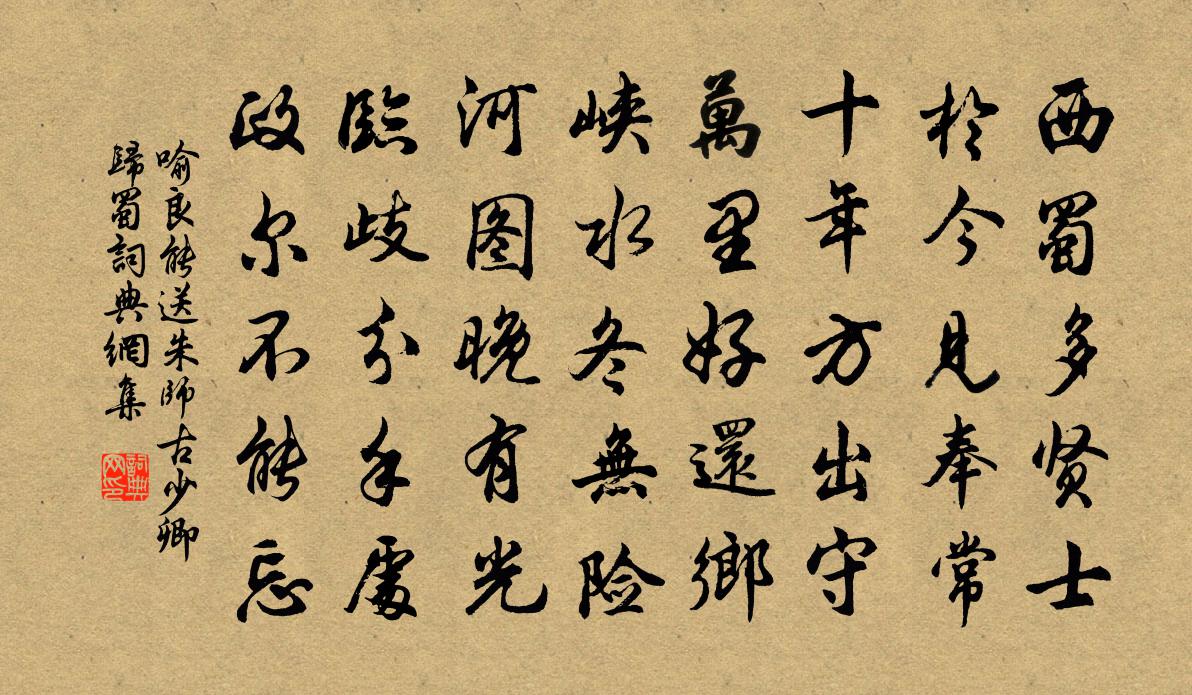 西蜀多贤士
於今見奉常
十年方出守
萬里好還鄉
峽水冬無险
河图晚有光
臨歧分手處
政尔不能忘
喻良能送朱師古少卿
歸蜀詞典網集
詞典
网印